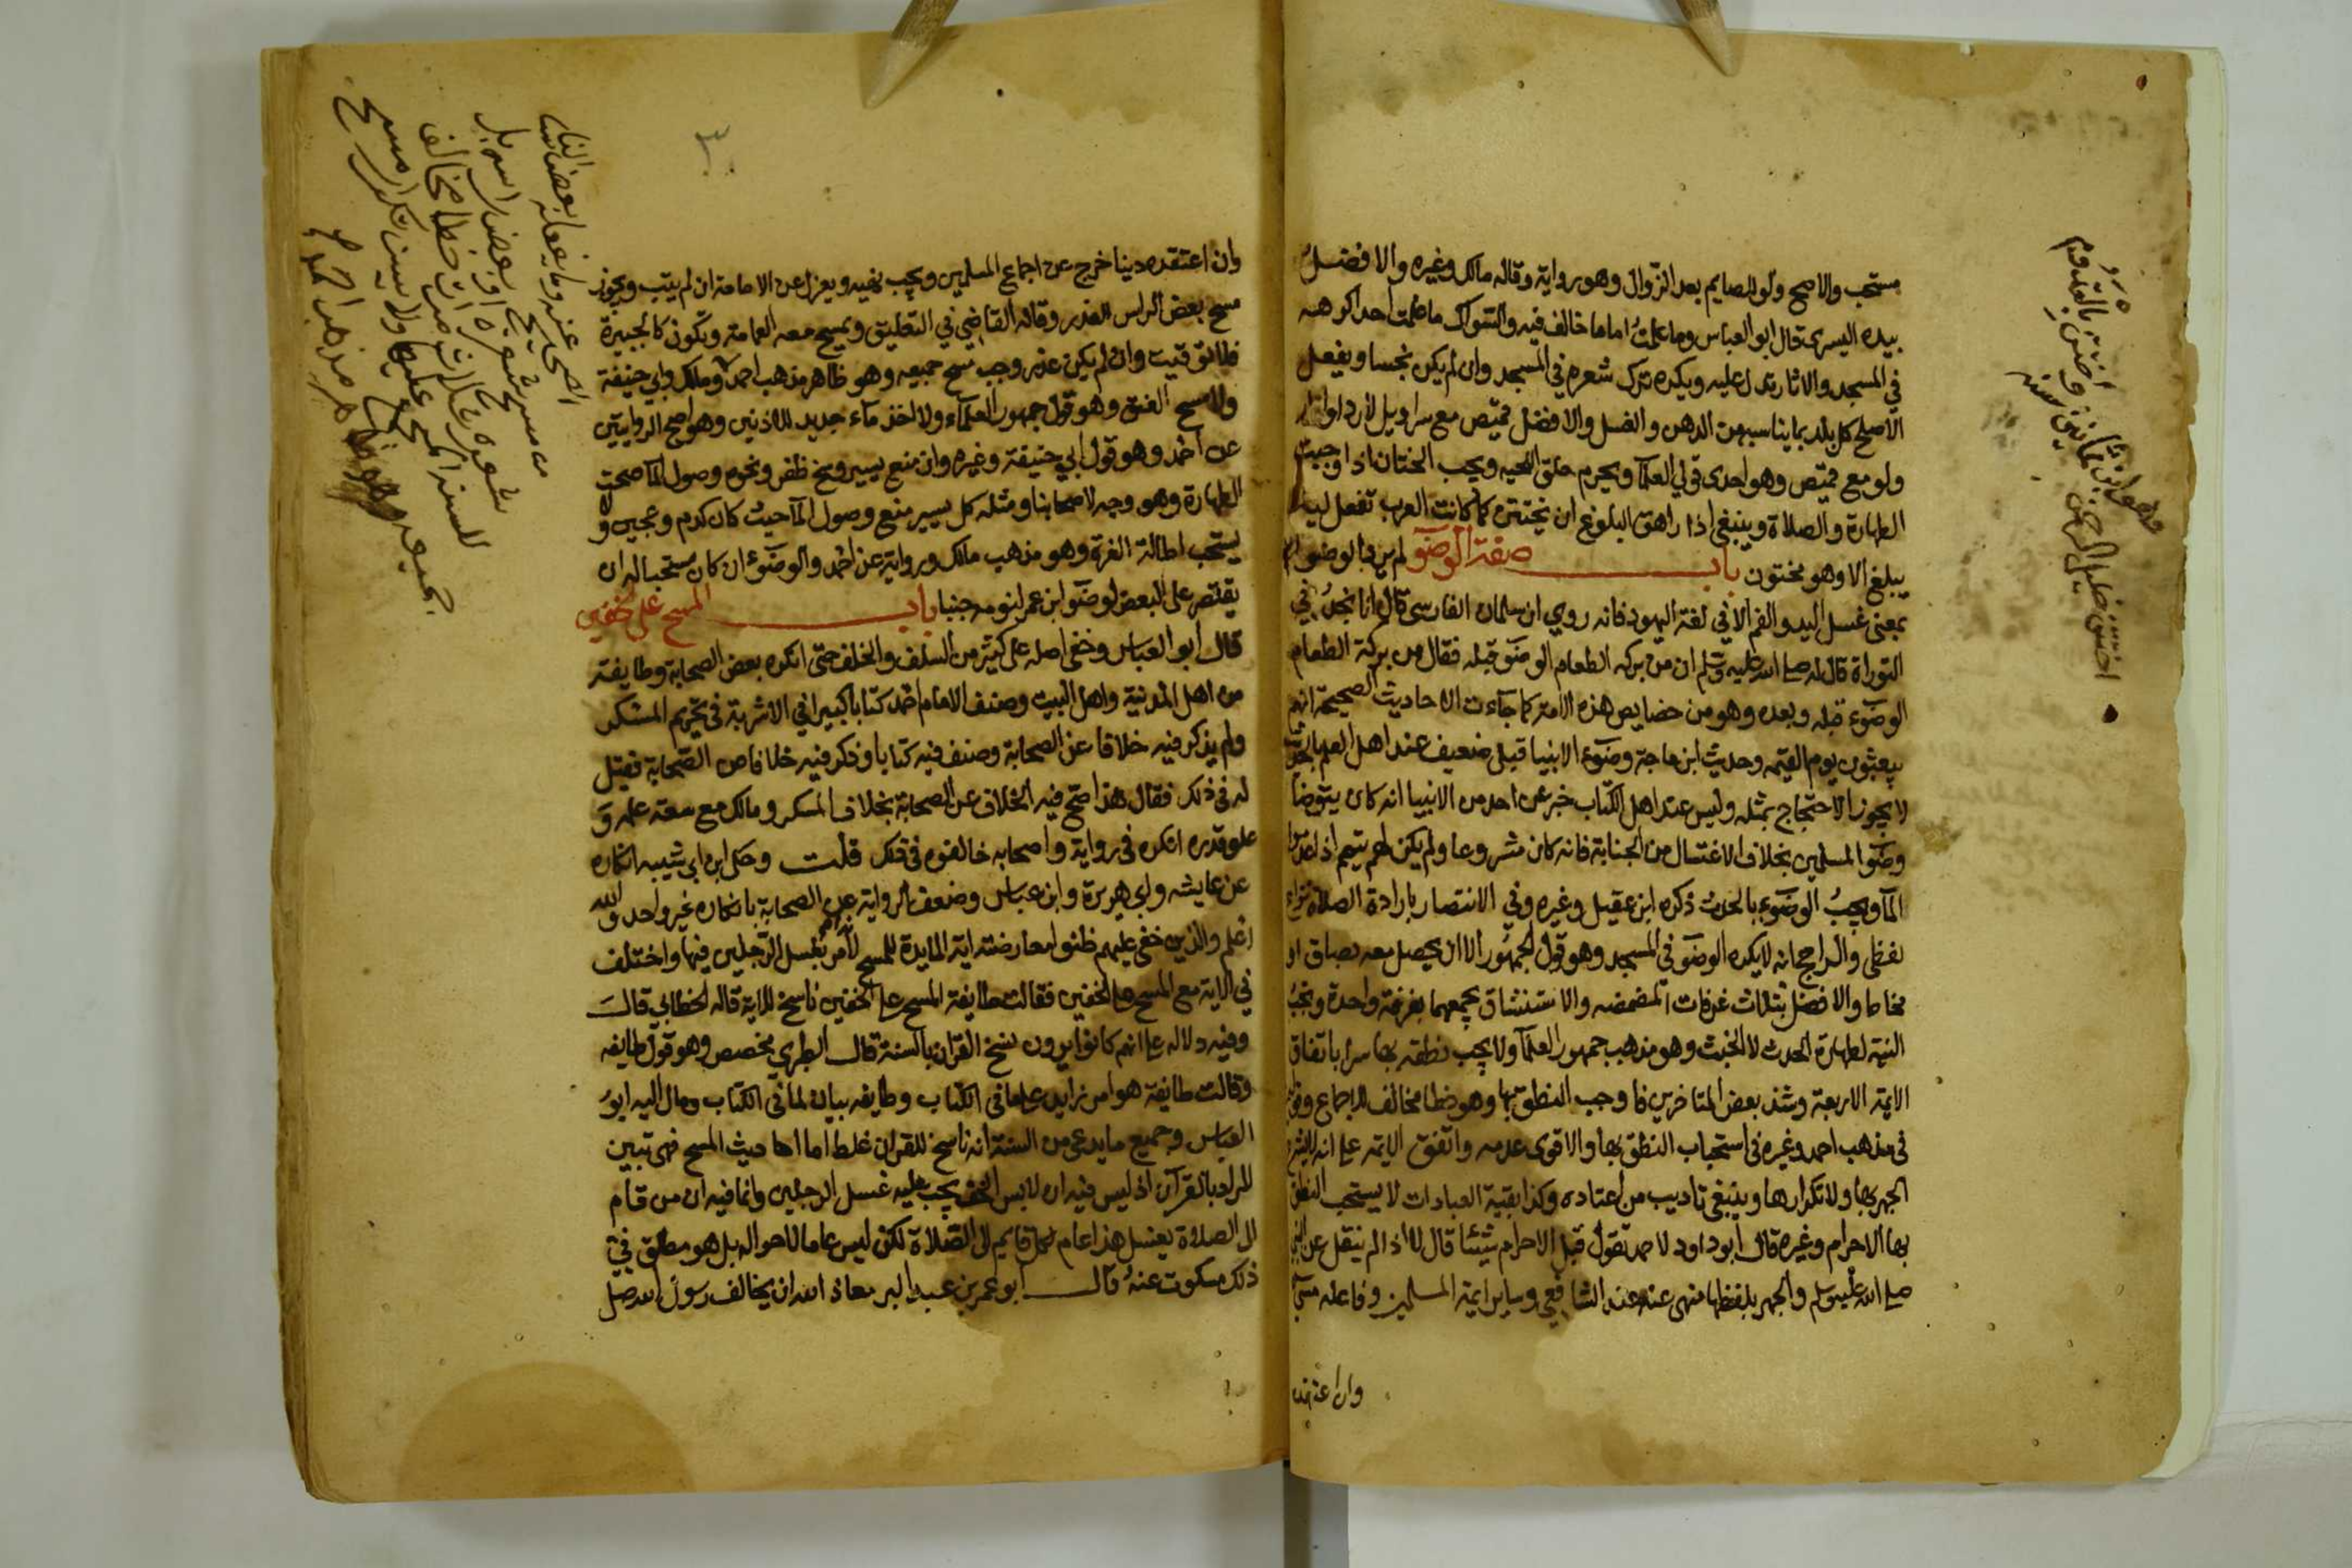 مستحب والاصح ولو للصايم بعد الزوال وهو رواية وقاله مالك وغيره والافضل
بيده اليسرى قال ابو العباس وما علمت اماما خالف فيه والتسوك ما علمت احدا كرهه
في المسجد والاثار تدل عليه ويكره ترك شعره في المسجد وان لم يكن نجسا ويفعل
الاصلح كل بلد بما يناسبه من الدهن والغسل والافضل قميص مع سراويل لا ردا وازار
ولو مع قميص وهو احدى قولي العلما ويحرم حلق اللحيه ويجب الختان اذا وجبت
الطهارة والصلاة وينبغي اذا راهق البلوغ ان يختتن كما كانت العرب تفعل ليلا
يبلغ الا وهو مختون باب صفة الوضو لم يرد الوضو
بمعنى غسل اليد والفم الا في لغة اليهود فانه روي ان سلمان الفارسى قال انا نجد في
التوراة قال له صلى الله عليه وسلم ان من بركه الطعام الوضو قبله فقال من بركة الطعام
الوضوء قبله وبعده وهو من خصايص هذه الامة كما جاءت الاحاديث الصحيحة انهم
يبعثون يوم القيمه وحديث ابن ماجة وضوء الانبيا قبلي ضعيف عند اهل العلم بالحديث
لا يجوز الاحتجاج بمثله وليس عند اهل الكتاب خبر عن احد من الانبيا انه كان يتوضا
وضو المسلمين بخلاف الاغتسال من الجنابة فانه كان مشروعا ولم يكن لهم تيمم اذا عدموا
الما ويجب الوضوء بالحدث ذكره ابن عقيل وغيره وفي الانتصار بارادة الصلاة
لفظي والراجح انه لا يكره الوضو في المسجد وهو قول الجمهور الا ان يحصل معه بصاق او
مخاط والافضل بثلاث غرفات المضمضه والاستنشاق يجمعهما بغرفة واحدة وتجب
النية لطهارة الحدث لا الخبث وهو مذهب جمهور العلما ولا يجب نطقه بها سرا باتفاق
الايمة الاربعة وشذ بعض المتاخرين فاوجب النطق بها وهو خطا مخالف للاجماع
في مذهب احمد وغيره في استحباب النطق بها والاقوى عدمه واتفق الايمة على انه لا يشرع
الجهر بها ولا تكرارها وينبغي تاديب من اعتاده وكذا بقية العبادات لا يستحب النطق
بها الاحرام وغيره قال ابو داود لاحمد تقول قبل الاحرام شيئا قال لا اذ لم ينقل عن النبي
صلى الله عليه وسلم والجهر بلفظها منهى عنه عند الشافعي وساير ايمة المسلمين وفاعله مسي
وان اعتقده
وهو ابن ثمانين واختتن بالقدوم
اختتن خليل الرحمن
سنه
٣
وان اعتقده دينا خرج عن اجماع المسلمين ويجب نهيه ويعزل عن الامامة ان لم يتب ويجوز
مسح بعض الراس لعذر وقاله القاضي في التعليق ويمسح معه العمامة ويكون كالجبيرة
فلا توقيت وان لم يكن عذر وجب مسح جميعه وهو ظاهر مذهب احمد ومالك وابي حنيفة
ولا مسح العنق وهو قول جمهور العلماء ولا اخذ ماء جديد للاذنين وهو اصح الروايتين
عن احمد وهو قول ابي حنيفة وغيره وان منع يسير وسخ ظفر ونحوه وصول الما صحت
الطهارة وهو وجه لاصحابنا ومثله كل يسير منع وصول الما حيث كان كدم وعجين ولا
يستحب اطالة الغرة وهو مذهب مالك ورواية عن احمد والوضوء ان كان مستحبا له ان
يقتصر على البعض لوضو ابن عمر لنومه جنبا باب المسح على الخفين
قال ابو العباس وخفي اصله على كثير من السلف والخلف حتى انكره بعض الصحابة وطايفة
من اهل المدينة واهل البيت وصنف الامام احمد كتابا كبيرا في الاشربة في تحريم المسكر
ولم يذكر فيه خلافا عن الصحابة وصنف فيه كتابا وذكر فيه خلافا من الصحابة فقيل
له في ذلك فقال هذا صح فيه الخلاف عن الصحابة بخلاف المسكر ومالك مع سعة علمه و
علو قدره انكره في رواية واصحابه خالفوه في ذلك قلت وحكى ابن ابي شيبه انكاره
عن عايشه وابي هريرة وابن عباس وضعف الرواية عن الصحابة بانكاره غير واحد والله
اعلم والذين خفي عليهم ظنوا معارضته اية المايدة للمسح للامر بغسل الرجلين فيها واختلف
في الاية مع المسح على الخفين فقالت طايفة المسح على الخفين ناسخ للاية قاله الخطابي قال
وفيه دلاله على انهم كانوا يرون نسخ القران بالسنة قال الطبري مخصص وهو قول طايفه
وقالت طايفة هو امر زايد على ما في الكتاب وطايفه بيان لما في الكتاب ومال اليه ابو
العباس وجميع ما يدعى من السنة انه ناسخ للقران غلط اما احاديث المسح فهى تبين
المراد بالقرآن اذ ليس فيه ان لابس الخف يجب عليه غسل الرجلين وانما فيه ان من قام
الى الصلاة يغسل هذا عام لكل قايم الى الصلاة لكن ليس عاما لاحواله بل هو مطلق في
ذلك مسكوت عنه قال ابو عمر بن عبد البر معاذ الله ان يخالف رسول الله صلى
الصحابة عنه وما يفعله بعض الناس
من مسح شعره او بعض راسه بل
شعره ثلاث مرات خطا مخالف
للسنة المجمع عليها ولا يسن تكرار مسح
جميعه وهو ظاهر مذهب احمد